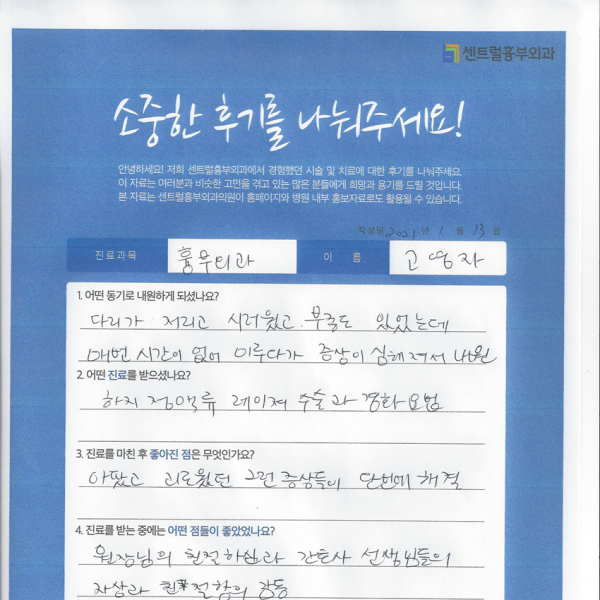 센트럴흉부외과
소중한 후기를 나눠주세요!
안녕하세요! 저희 센트럴흉부외과에서 경험했던 시술 및 치료에 대한 후기를 나눠주세요.
이 자료는 여러분과 비슷한 고민을 겪고 있는 많은 분들에게 희망과 용기를 드릴 것입니다.
본 자료는 센트럴흉부외과의원이 홈페이지와 병원 내부 홍보자료로도 활용될 수 있습니다.
작성일 2021 년 1 월 13 일
진료과목 흉부외과 이 름 고영자
1. 어떤 동기로 내원하게 되셨나요?
다리가 저리고 시려웠고. 부종도 있었는데
매번 시간이 없어 미루다가 증상이 심해져서 내원
2. 어떤 진료를 받으셨나요?
하지 정맥류 레이져 수술과 경화요법
3. 진료를 마친 후 좋아진 점은 무엇인가요?
아팠고 괴로웠던 그런 증상들이 단번에 해결
4. 진료를 받는 중에는 어떤 점들이 좋았었나요?
원장님의 친절하심과 간호사 선생님들의
자상과 친절함의 감동